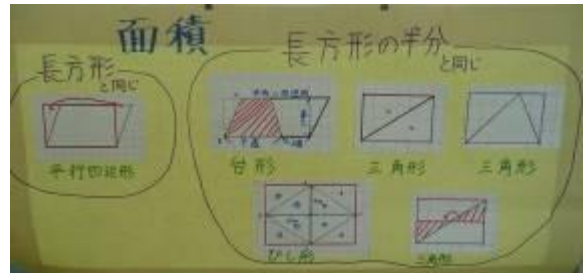 面積
長方形
と同じ
平行四辺形
長方形の半分
と同じ
台形
三角形
三角形
ひし形
三角形